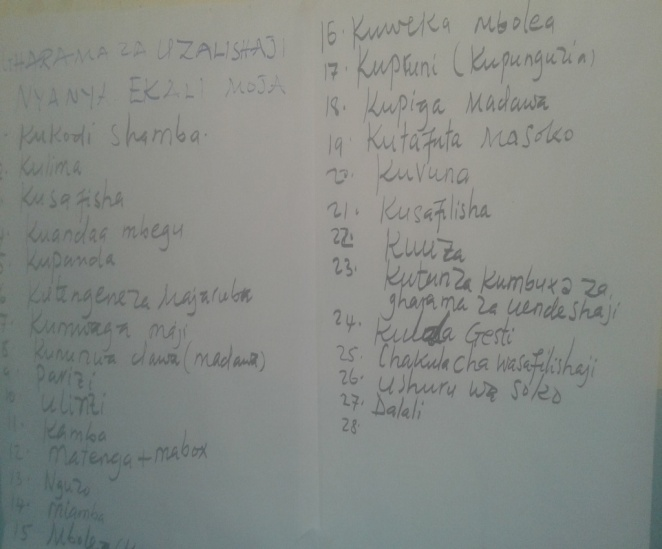 GHARAMA ZA UZALISHAJI
NYANYA EKALI MOJA
Kukodi Shamba.
Kulima
Kusafisha
Kuandaa mbegu
5 Kupanda
6 Kutengeneza Majaruba
7. Kumwaga maji
8 Kununua dawa (madawa)
9. Parizi
10 Ulinzi
11. Kamba
12. Matenga + mabox
13. Nguzo
14. Mlamba
15 Mbolea
16. Kuweka mbolea
17. Kupruni (Kupunguzia)
18. Kupiga Madawa
19. Kutafuta Masoko
20. Kuvuna
21. Kusafilisha
22. Kuuza
23. Kutunza Kumbuxa za
gharama za uendeshaji
24. Gesti
25. Chakula cha wasafilishaji
26. Ushuru wa Soko
27. Dalali
28.